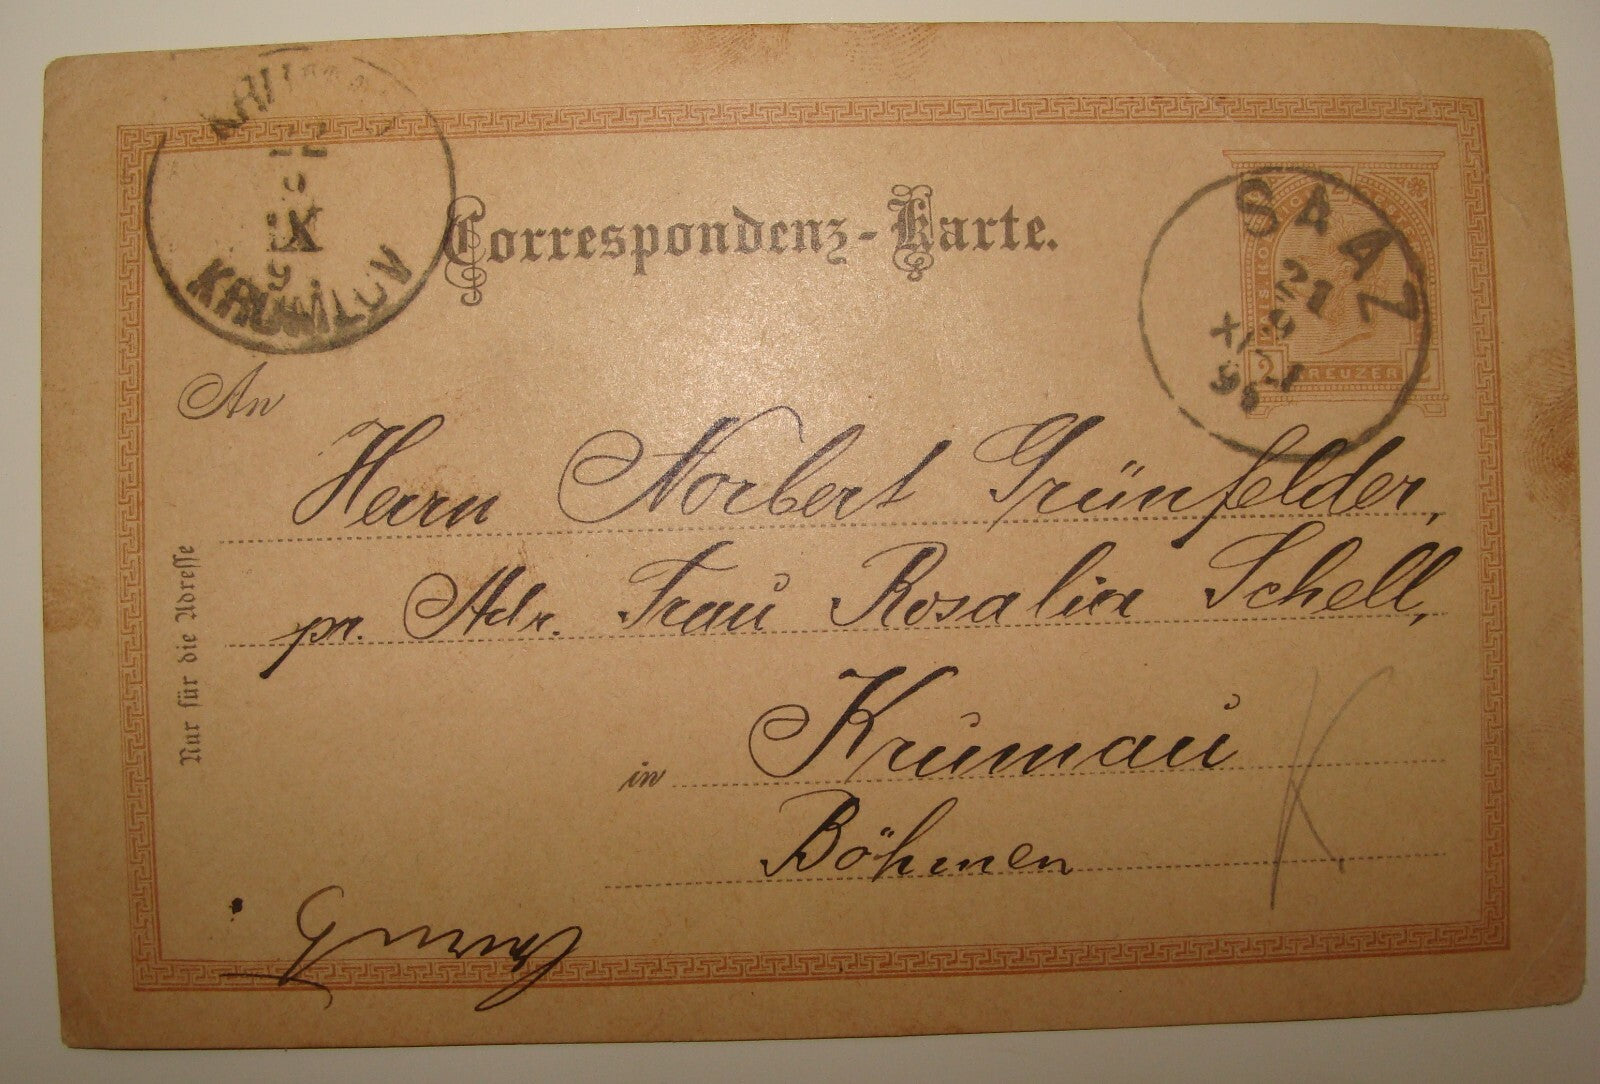 KRUMLOV
IX
Correspondenz-Karte.
SAAZ
21
2 KREUZER 2
An
Herrn Norbert Grünfelder,
pr. Adr. Frau Rosalia Schell,
in Krumau
Böhmen
K
Nur für die Adresse